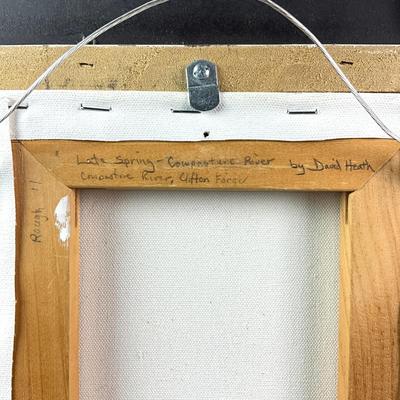 Late Spring - Cowpasture River by David Heath
Cowpasture River, Clifton Forge
Rough 11